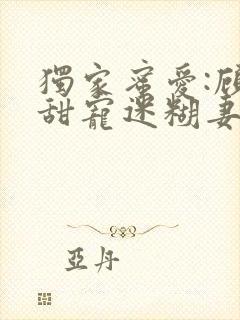 獨家蜜愛:顾
甜寵迷糊妻
亞丹